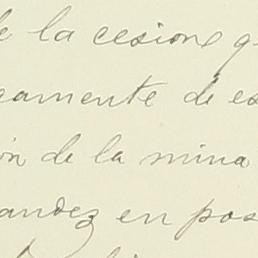 de la cesion q
camente de es
ón de la mina
andez en pos